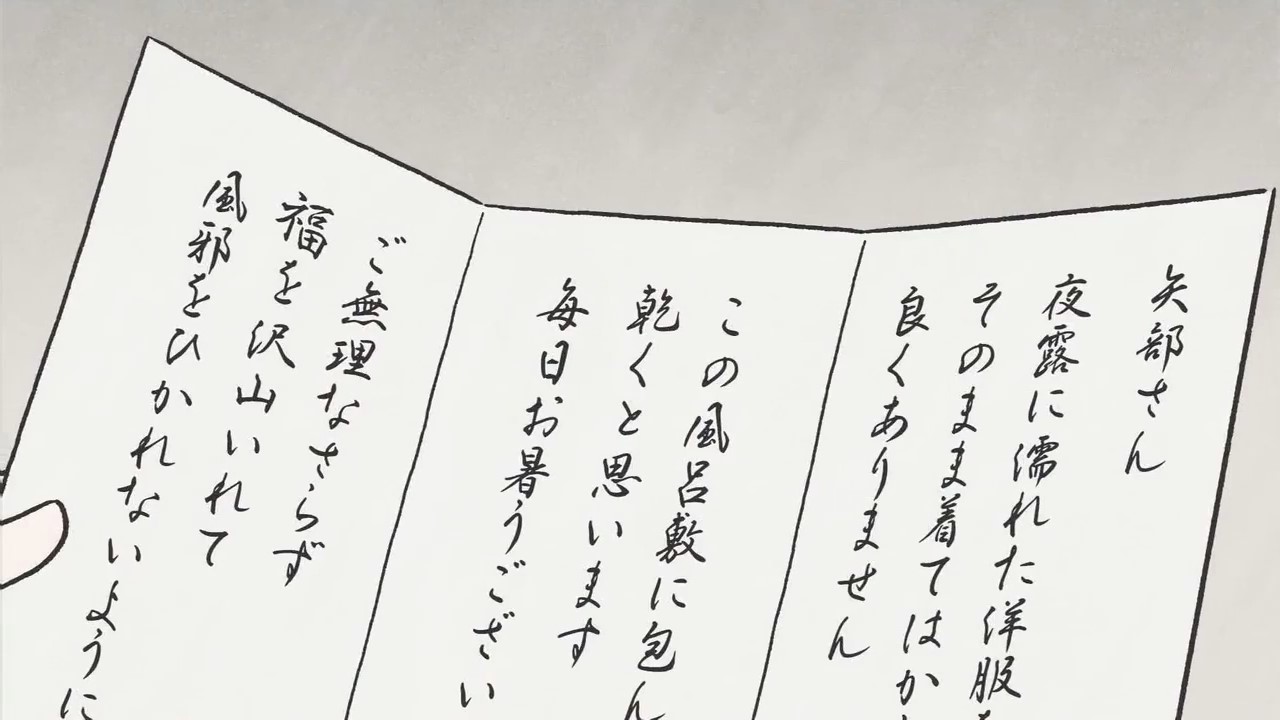 矢部さん
夜露に濡れた洋服
そのまま着てはか
良くありません
この風呂敷に包ん
乾くと思います
毎日お暑うござい
ご無理なさらず
福を沢山いれて
風邪をひかれないように